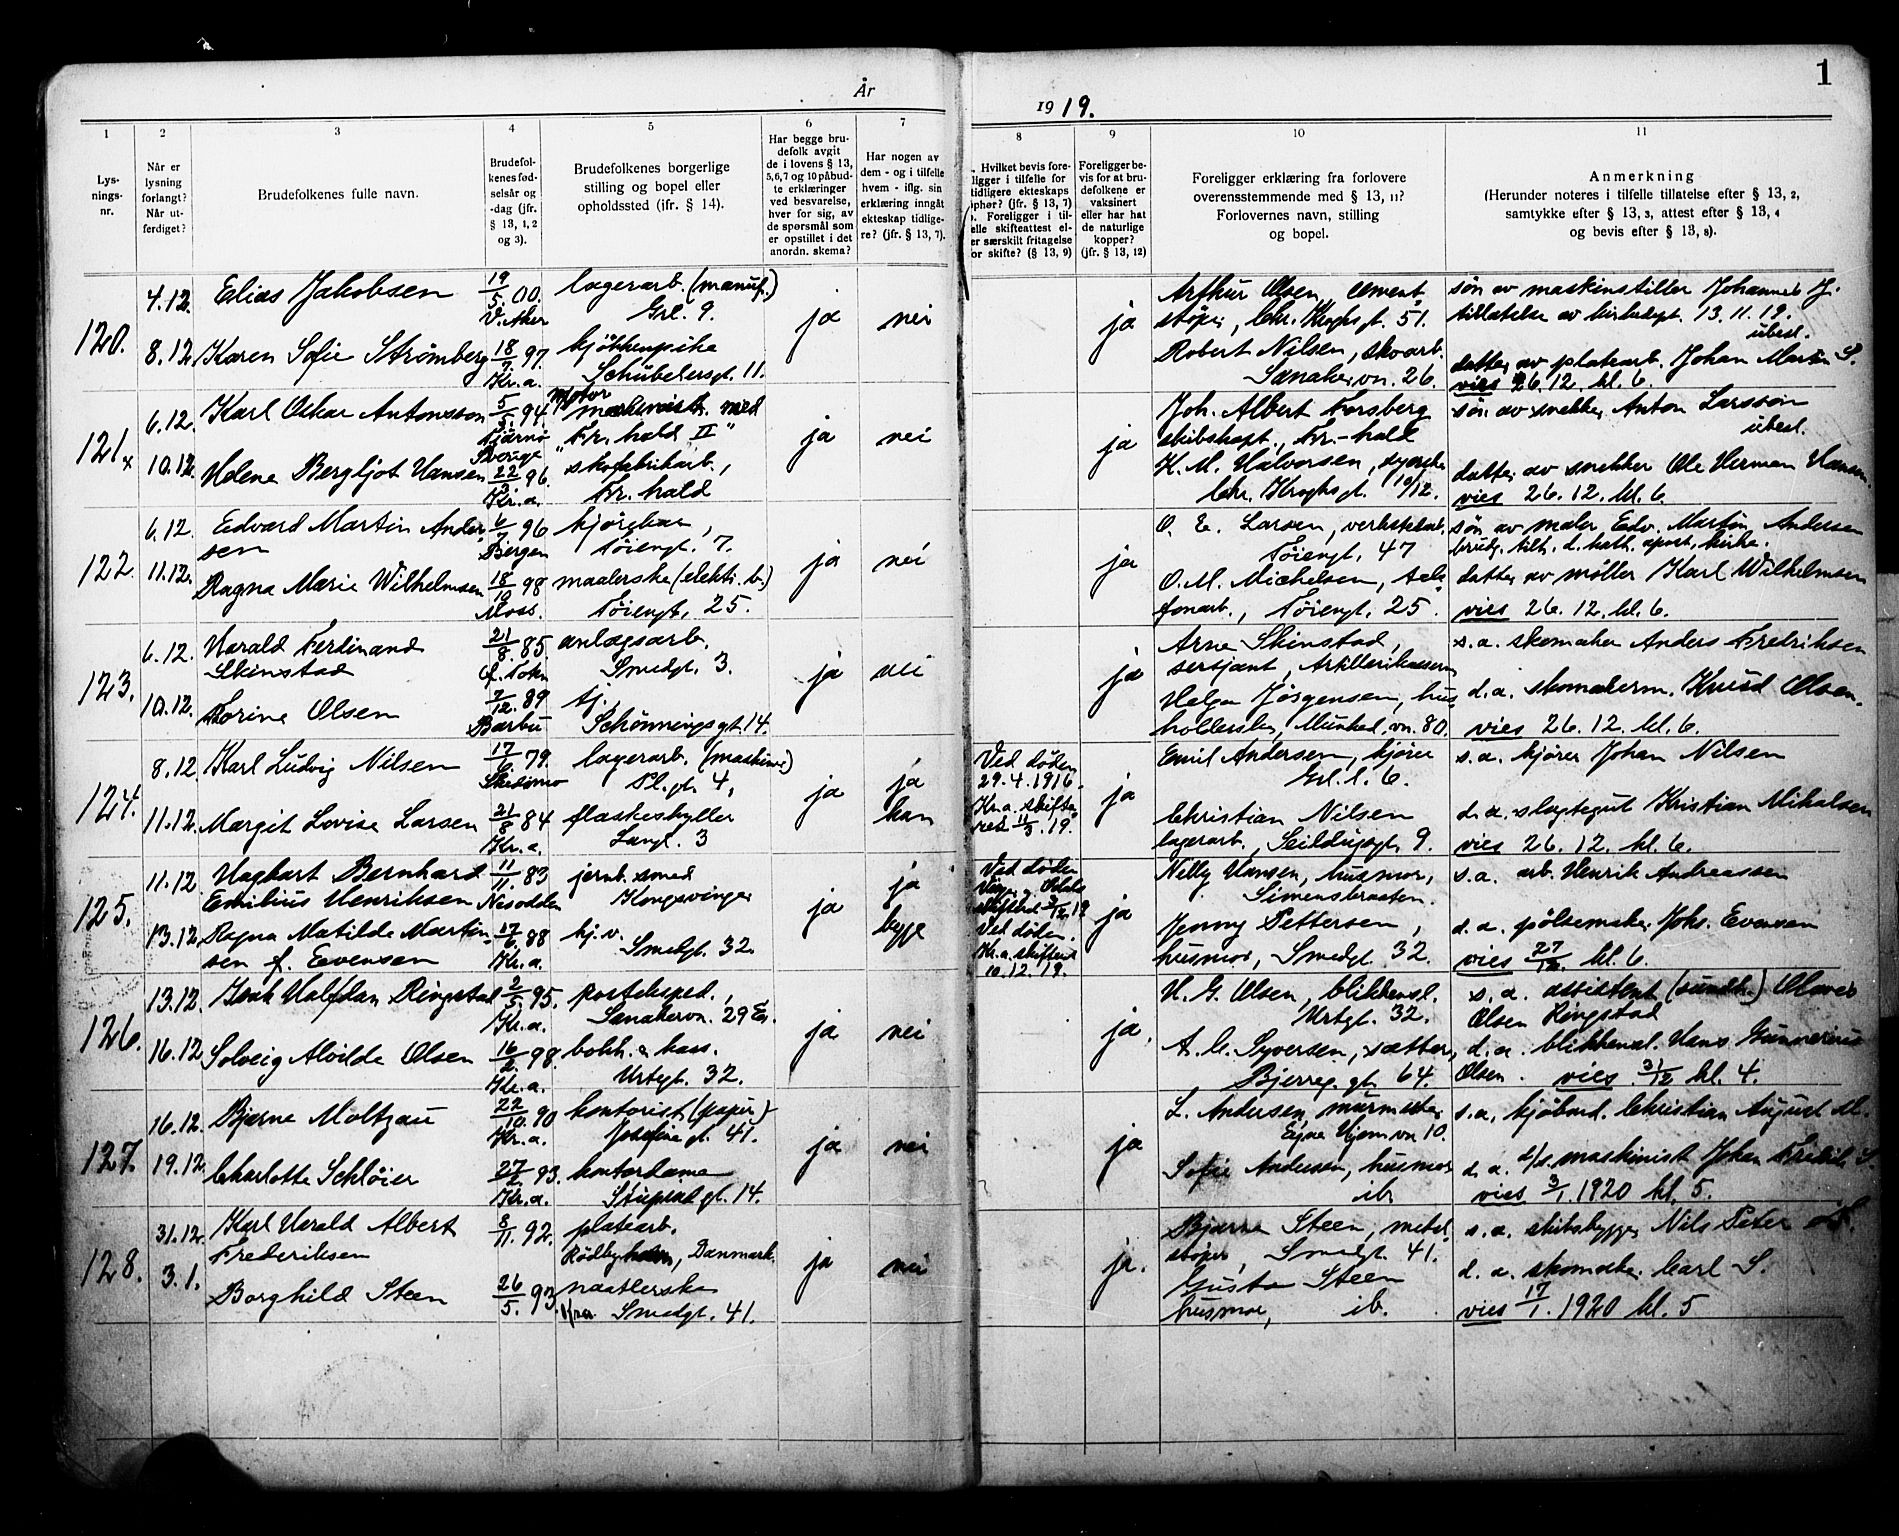 1
År
1919.
1 2 3 4 5 6 7 8 9 10 11
Lys-
nings-
nr.
Når er
lysning
forlangt?
Når ut-
ferdiget?
Brudefolkenes fulle navn.
Brudefol-
kenes fød-
selsår og
-dag (jfr.
§ 13, 1, 2
og 3).
Brudefolkenes borgerlige
stilling og bopel eller
opholdssted (ifr. § 14).
Har begge bru-
defolk avgit
de i lovens § 13,
5,6,7 og 10 påbud-
te erklæringer
ved besvarelse,
hver for sig, av
de spørsmål som
er opstillet i det
anordn. skema?
Har nogen av
dem - og i tilfelle
hvem - iflg. sin
erklæring inngåt
ekteskap tidlige-
re? (jfr. § 13, 7).
Hvilket bevis fore-
ligger i tilfelle for
tidligere ekteskaps
ophør? (jfr. § 13, 7)
Foreligger i til-
elle skifteattest el-
er særskilt fritagelse
for skifte? (§ 13, 9)
Foreligger be-
vis for at bru-
defolkene er
vaksinert
eller har hat
de naturlige
kopper?
(jfr. § 13, 12)
Foreligger erklæring fra forlovere
overensstemmende med § 13, 11?
Forlovernes navn, stilling
og bopel.
Anmerkning
(Herunder noteres i tilfelle tillatelse efter § 13, 2,
samtykke efter § 13, 3, attest efter § 13, 4
og bevis efter § 13, 8).
120.
4.12. Elias Jakobsen 19/5.00. lagerarb. (manuf.)
V. Aker Grl. 9.
8.12. Karen Sofie Strømberg 18/7 97. kjøkkenpike
Kr.a. Schübelersgt. 11.
ja nei ja
Arthur Olsen, cement-
støper, Chr. Kroghsgt. 51.
Robert Nilsen, skoarb.
Sanakervn. 26.
søn av maskinstiller Johannes J.
tillatelse av kirkedept. 13.11.19.
ubesl.
datter av platearb. Johan Martin S.
vies 26.12. kl. 6.
121x
6.12. Karl Oskar Antonsson 5/5 94 motor
maskinist med
Tjärnö "Fr. hald II"
Sverige
10.12. Helene Bergljot Hansen 22/3 96. skofabrikarb.,
Kr.a. Fr. hald
ja nei ja
Joh. Albert Forsberg
skibskapt., Fr-hald
K. M. Halvorsen,
Chr. Kroghsgt. 10/12.
søn av snekker Anton Larsson
ubesl.
datter av snekker Ole Herman Hansen
vies 26.12. kl. 6.
122.
6.12. Edvard Martin Ander- 6/7 96 kjørekar,
sen Bergen Tøiengt. 7.
11.12. Ragna Marie Wilhelmsen 18/10 98 maalerske (elektr. b.)
Moss. Tøiengt. 25.
ja nei ja
O. E. Larsen, verkstedarb.
Tøiengt. 47
O. M. Michelsen, tele-
fonarb., Tøiengt. 25.
søn av maler Edv. Martin Andersen
brudg. tilh. d. kath. apost. kirke.
datter av møller Karl Wilhelmsen
vies 26.12. kl. 6.
123.
6.12. Harald Ferdinand 21/8. 85. anlægsarb.
Skinstad Ø. Toten Smedgt. 3.
10.12. Torine Olsen 7/12. 89 tj.
Barbu Schønningsgt. 14.
ja nei ja
Arne Skinstad,
sersjant, Artillerikasern
Helga Jørgensen, hus-
holderske, Munked.vn. 80.
s.a. skomaker Anders Fredriksen
d.a. skomakerm. Knud Olsen.
vies 26.12. kl. 6.
124.
8.12. Karl Ludvig Nilsen 17/6 79. lagerarb. (maskine)
Skedsmo Pl.gt. 4,
11.12. Margit Lovise Larsen 21/8 84 flaskeskyller
Kr.a. Langt. 3
ja ja
han
Ved døden
29.4.1916.
Kr.a. skifte-
ret 11/3.19.
ja
Emil Andersen, kjører
Grl. l. 6.
Christian Nilsen
lagerarb., Seilduksgt. 9.
s.a. kjører Johan Nilsen
d.a. slagtegut Kristian Mikalsen
vies 26.12. kl. 6.
125.
11.12. Haghart Bernhard 11/11. 83 jernb. smed
Emilius Henriksen Nesodden Kongsvinger
13.12. Ragna Matilde Martin- 17/6. 88 hj.v.
sen f. Evensen Kr.a. Smedgt. 32.
ja ja
begge
Ved døden
Ving. og Odals
skifteret 3/12.19
Ved døden.
Kr.a. skifteret
10.12.19.
ja
Nelly Hansen, husmor,
Simensbraaten.
Jenny Pettersen,
husmor, Smedgt. 32.
s.a. arb. Henrik Andreassen
d.a. pølsemaker Johs. Evensen
vies 27/12. kl. 6.
126.
13.12. Isak Halfdan Ringstad 2/5. 95. posteksped.,
Kr.a. Sanakervn. 29
16.12. Solveig Alvilde Olsen 16/2. 98. bokh. & kass.
Kr.a. Urtegt. 32.
ja nei ja.
H. G. Olsen, blikkensl.
Urtgt. 32.
A. G. Syversen, sætter,
Bjerreg.gt. 64.
s.a. assistent (sundh.) Olaves
Olsen Ringstad
d.a. blikkensl. Hans Gunnerius
Olsen. vies 31/12 kl. 4.
127.
16.12. Bjarne Moltzau 22/10. 90 kontorist (papir)
Kr.a. Josefine gt. 41.
19.12. Charlotte Schløier 27/2. 93. kontordame
Kr.a. Stupsat gt. 14.
ja nei ja
L. Andersen, murmester
Egne Hjem vn. 10.
Sofie Andersen, husmor
ib.
s.a. kjøbmd. Christian August M.
d.a. d/s. maskinist Johan Fredrik S.
vies 3/1. 1920 kl. 5.
128.
31.12. Karl Harald Albert 8/11. 92. platearb.
Frederiksen Rødbyhavn, Danmark.
3.1. Borghild Steen 26/5. 93. naatlerske
Smedgt. 41.
ja nei ja.
Bjarne Steen, metal-
støper, Smedgt. 41.
Gusta Steen
husmor, ib.
s.a. skibsbygger Nils Peter F.
d.a. skomaker Carl S.
vies 17/1. 1920 kl. 5